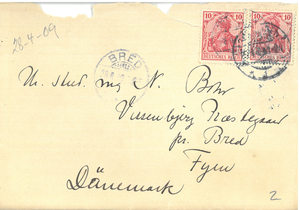 28-4-09
10 10
DEUTSCHES REICH
BRED
Hr. Stud. mag N. Bohr
Vissenbjerg Præstegaard
pr. Bred
Fyen
Dänemark
2